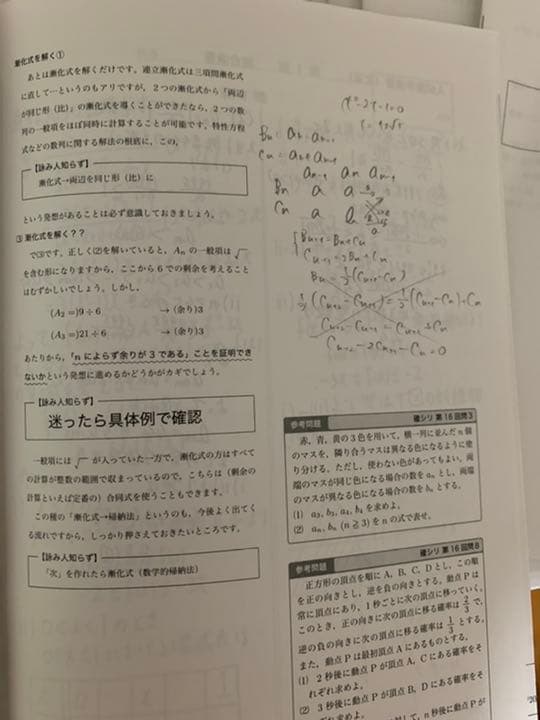 漸化式を解く①
あとは漸化式を解くだけです。連立漸化式は三項間漸化式
に直して…というのもアリですが、2つの漸化式から「両辺
が同じ形（比）」の漸化式を導くことができたなら、2つの数
列の一般項をほぼ同時に計算することが可能です。特性方程
式などの数列に関する解法の根底に、この、
【詠み人知らず】
漸化式→両辺を同じ形（比）に
という発想があることは必ず意識しておきましょう。
③ 漸化式を解く？？
で③です。正しく(2)を解いていると、Anの一般項は√
を含む形になりますから、ここから6での剰余を考えること
はむずかしいでしょう。しかし、
(A2=)9÷6 →(余り)3
(A3=)21÷6 →(余り)3
あたりから、「nによらず余りが3である」ことを証明でき
ないかという発想に進めるかどうかがカギでしょう。
【詠み人知らず】
迷ったら具体例で確認
一般項には√が入っていた一方で、漸化式の方はすべて
の計算が整数の範囲で収まっているので、こちらは（剰余の
計算といえば定番の）合同式を使うこともできます。
この種の「漸化式→帰納法」というのも、今後よく出てく
る流れですから、しっかり押さえておきたいところです。
【詠み人知らず】
「次」を作れたら漸化式（数学的帰納法）
an-1 an an+1
Bn a a
Cn a
Bn+1=Bn+Cn
Cn+1=2Bn+Cn
Bn=1/2(Cn+1-Cn)
1/2(Cn+2-Cn+1)=1/2(Cn+1-Cn)+Cn
Cn+2-2Cn+1-Cn=0
参考問題 確シリ 第16回問3
赤、青、黄の3色を用いて、横一列に並んだn個
のマスを、隣り合うマスは異なる色になるように塗
り分ける。ただし、使わない色があってもよい。両
端のマスが同じ色になる場合の数をan とし、両端
のマスが異なる色になる場合の数をbn とする。
(1) a3, b3, a4, b4 を求めよ。
(2) an, bn (n≧3) をnの式で表せ。
参考問題 確シリ 第16回問8
正方形の頂点を順にA、B、C、Dとし、この順
を正の向きとし、逆を負の向きとする。動点Pは
常に頂点にあり、1秒ごとに次の頂点に移っていく。
このとき、正の向きに次の頂点に移る確率は2/3で、
逆の負の向きに次の頂点に移る確率は1/3とする。
また、動点Pは最初頂点Aにあるものとする。
(1) 2秒後に動点Pが頂点A、Cにある確率をそ
れぞれ求めよ。
(2) 3秒後に動点Pが頂点B、Dにある確率をそ
れぞれ求めよ。
対して、n秒後に動点Pが